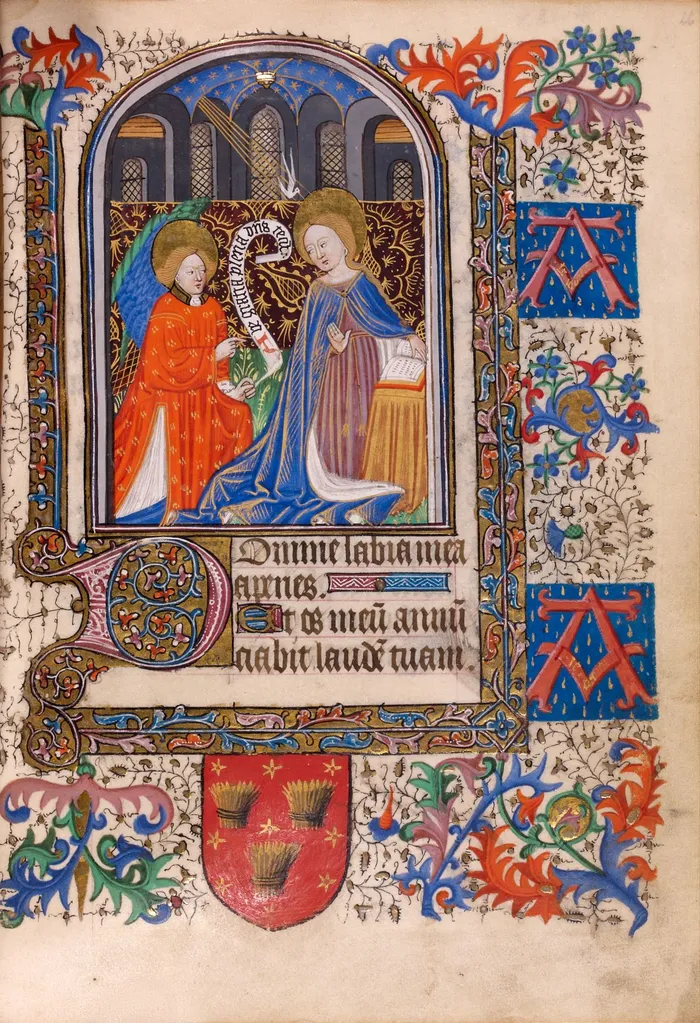 Ave gratia plena dns tecū
Domine labia mea
aperies.
Et os meū annū
ciabit laudē tuam.
A
A